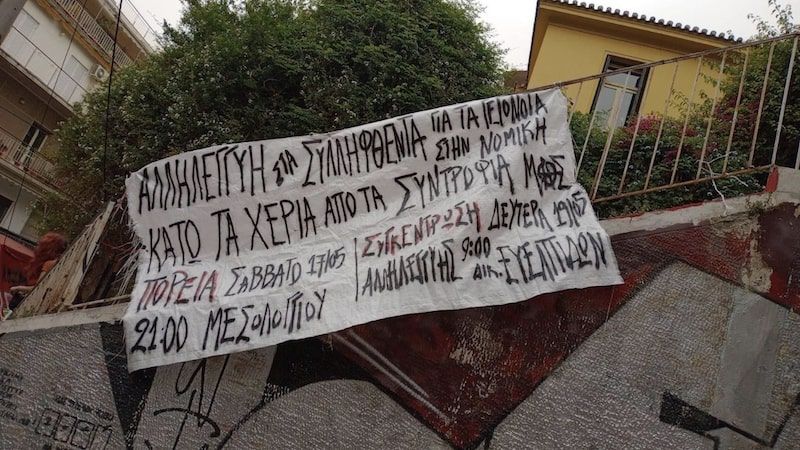 ΑΛΛΗΛΕΓΓΥΗ ΣΤΑ ΣΥΛΛΗΦΘΕΝΤΑ ΓΙΑ ΤΑ ΓΕΓΟΝΟΤΑ ΣΤΗΝ ΝΟΜΙΚΗ
ΚΑΤΩ ΤΑ ΧΕΡΙΑ ΑΠΟ ΤΑ ΣΥΝΤΡΟΦΙΑ ΜΑΣ
ΠΟΡΕΙΑ ΣΑΒΒΑΤΟ 17/05
21:00 ΜΕΣΟΛΟΓΓΙΟΥ
ΣΥΓΚΕΝΤΡΩΣΗ ΔΕΥΤΕΡΑ 19/05
ΑΛΛΗΛΕΓΓΥΗΣ 9:00 ΔΙΚ. ΕΥΕΛΠΙΔΩΝ